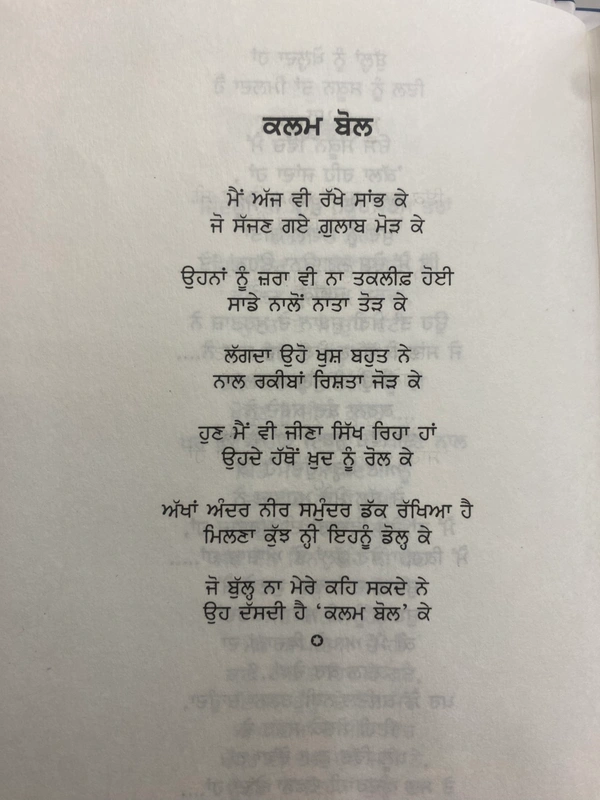 ਕਲਮ ਬੋਲ
ਮੈਂ ਅੱਜ ਵੀ ਰੱਖੇ ਸਾਂਭ ਕੇ
ਜੋ ਸੱਜਣ ਗਏ ਗ਼ੁਲਾਬ ਮੋੜ ਕੇ
ਉਹਨਾਂ ਨੂੰ ਜ਼ਰਾ ਵੀ ਨਾ ਤਕਲੀਫ਼ ਹੋਈ
ਸਾਡੇ ਨਾਲੋਂ ਨਾਤਾ ਤੋੜ ਕੇ
ਲੱਗਦਾ ਉਹੋ ਖੁਸ਼ ਬਹੁਤ ਨੇ
ਨਾਲ ਰਕੀਬਾਂ ਰਿਸ਼ਤਾ ਜੋੜ ਕੇ
ਹੁਣ ਮੈਂ ਵੀ ਜੀਣਾ ਸਿੱਖ ਰਿਹਾ ਹਾਂ
ਉਹਦੇ ਹੱਥੋਂ ਖ਼ੁਦ ਨੂੰ ਰੋਲ ਕੇ
ਅੱਖਾਂ ਅੰਦਰ ਨੀਰ ਸਮੁੰਦਰ ਡੱਕ ਰੱਖਿਆ ਹੈ
ਮਿਲਣਾ ਕੁੱਝ ਨ੍ਹੀ ਇਹਨੂੰ ਡੋਲ੍ਹ ਕੇ
ਜੋ ਬੁੱਲ੍ਹ ਨਾ ਮੇਰੇ ਕਹਿ ਸਕਦੇ ਨੇ
ਉਹ ਦੱਸਦੀ ਹੈ ‘ਕਲਮ ਬੋਲ’ ਕੇ